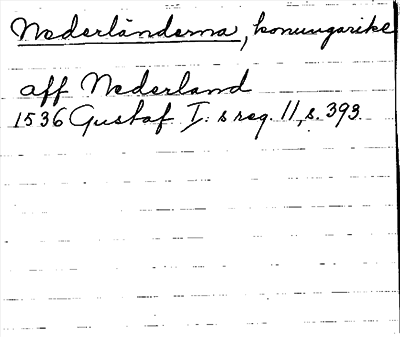 Nederländerna, konungarike
aff Nederland
1536 Gustaf I:s reg. 11, s. 393